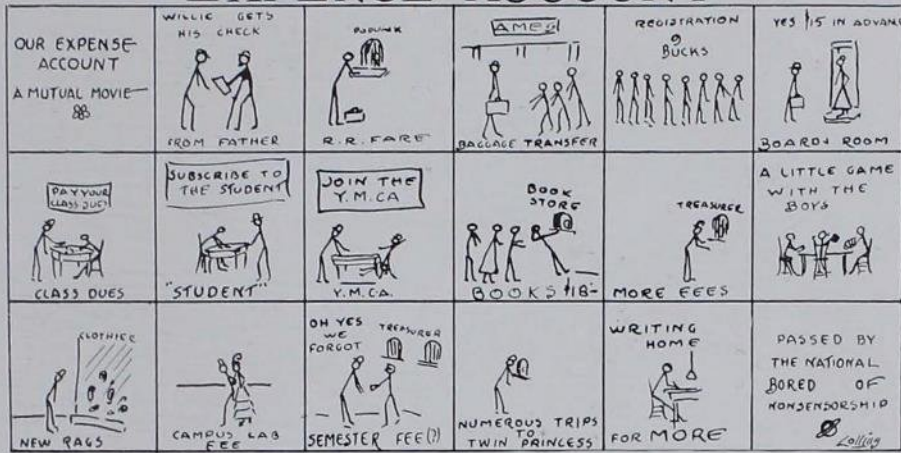 OUR EXPENSE
ACCOUNT
A MUTUAL MOVIE
WILLIE GETS
HIS CHECK
FROM FATHER
PODUNK
R.R. FARE
AMES
BAGGAGE TRANSFER
REGISTRATION
9
BUCKS
YES $15 IN ADVANC
BOARD & ROOM
PAY YOUR
CLASS DUES
CLASS DUES
SUBSCRIBE TO
THE STUDENT
"STUDENT"
JOIN THE
Y.M.CA
Y.M.C.A.
BOOK
STORE
BOOKS $18-
TREASURER
MORE FEES
A LITTLE GAME
WITH THE
BOYS
CLOTHIER
NEW RAGS
CAMPUS LAB
FEE
OH YES
WE
FORGOT
TREASURER
SEMESTER FEE(?)
NUMEROUS TRIPS
TO
TWIN PRINCESS
WRITING
HOME
FOR MORE
PASSED BY
THE NATIONAL
BORED OF
NONSENSORSHIP